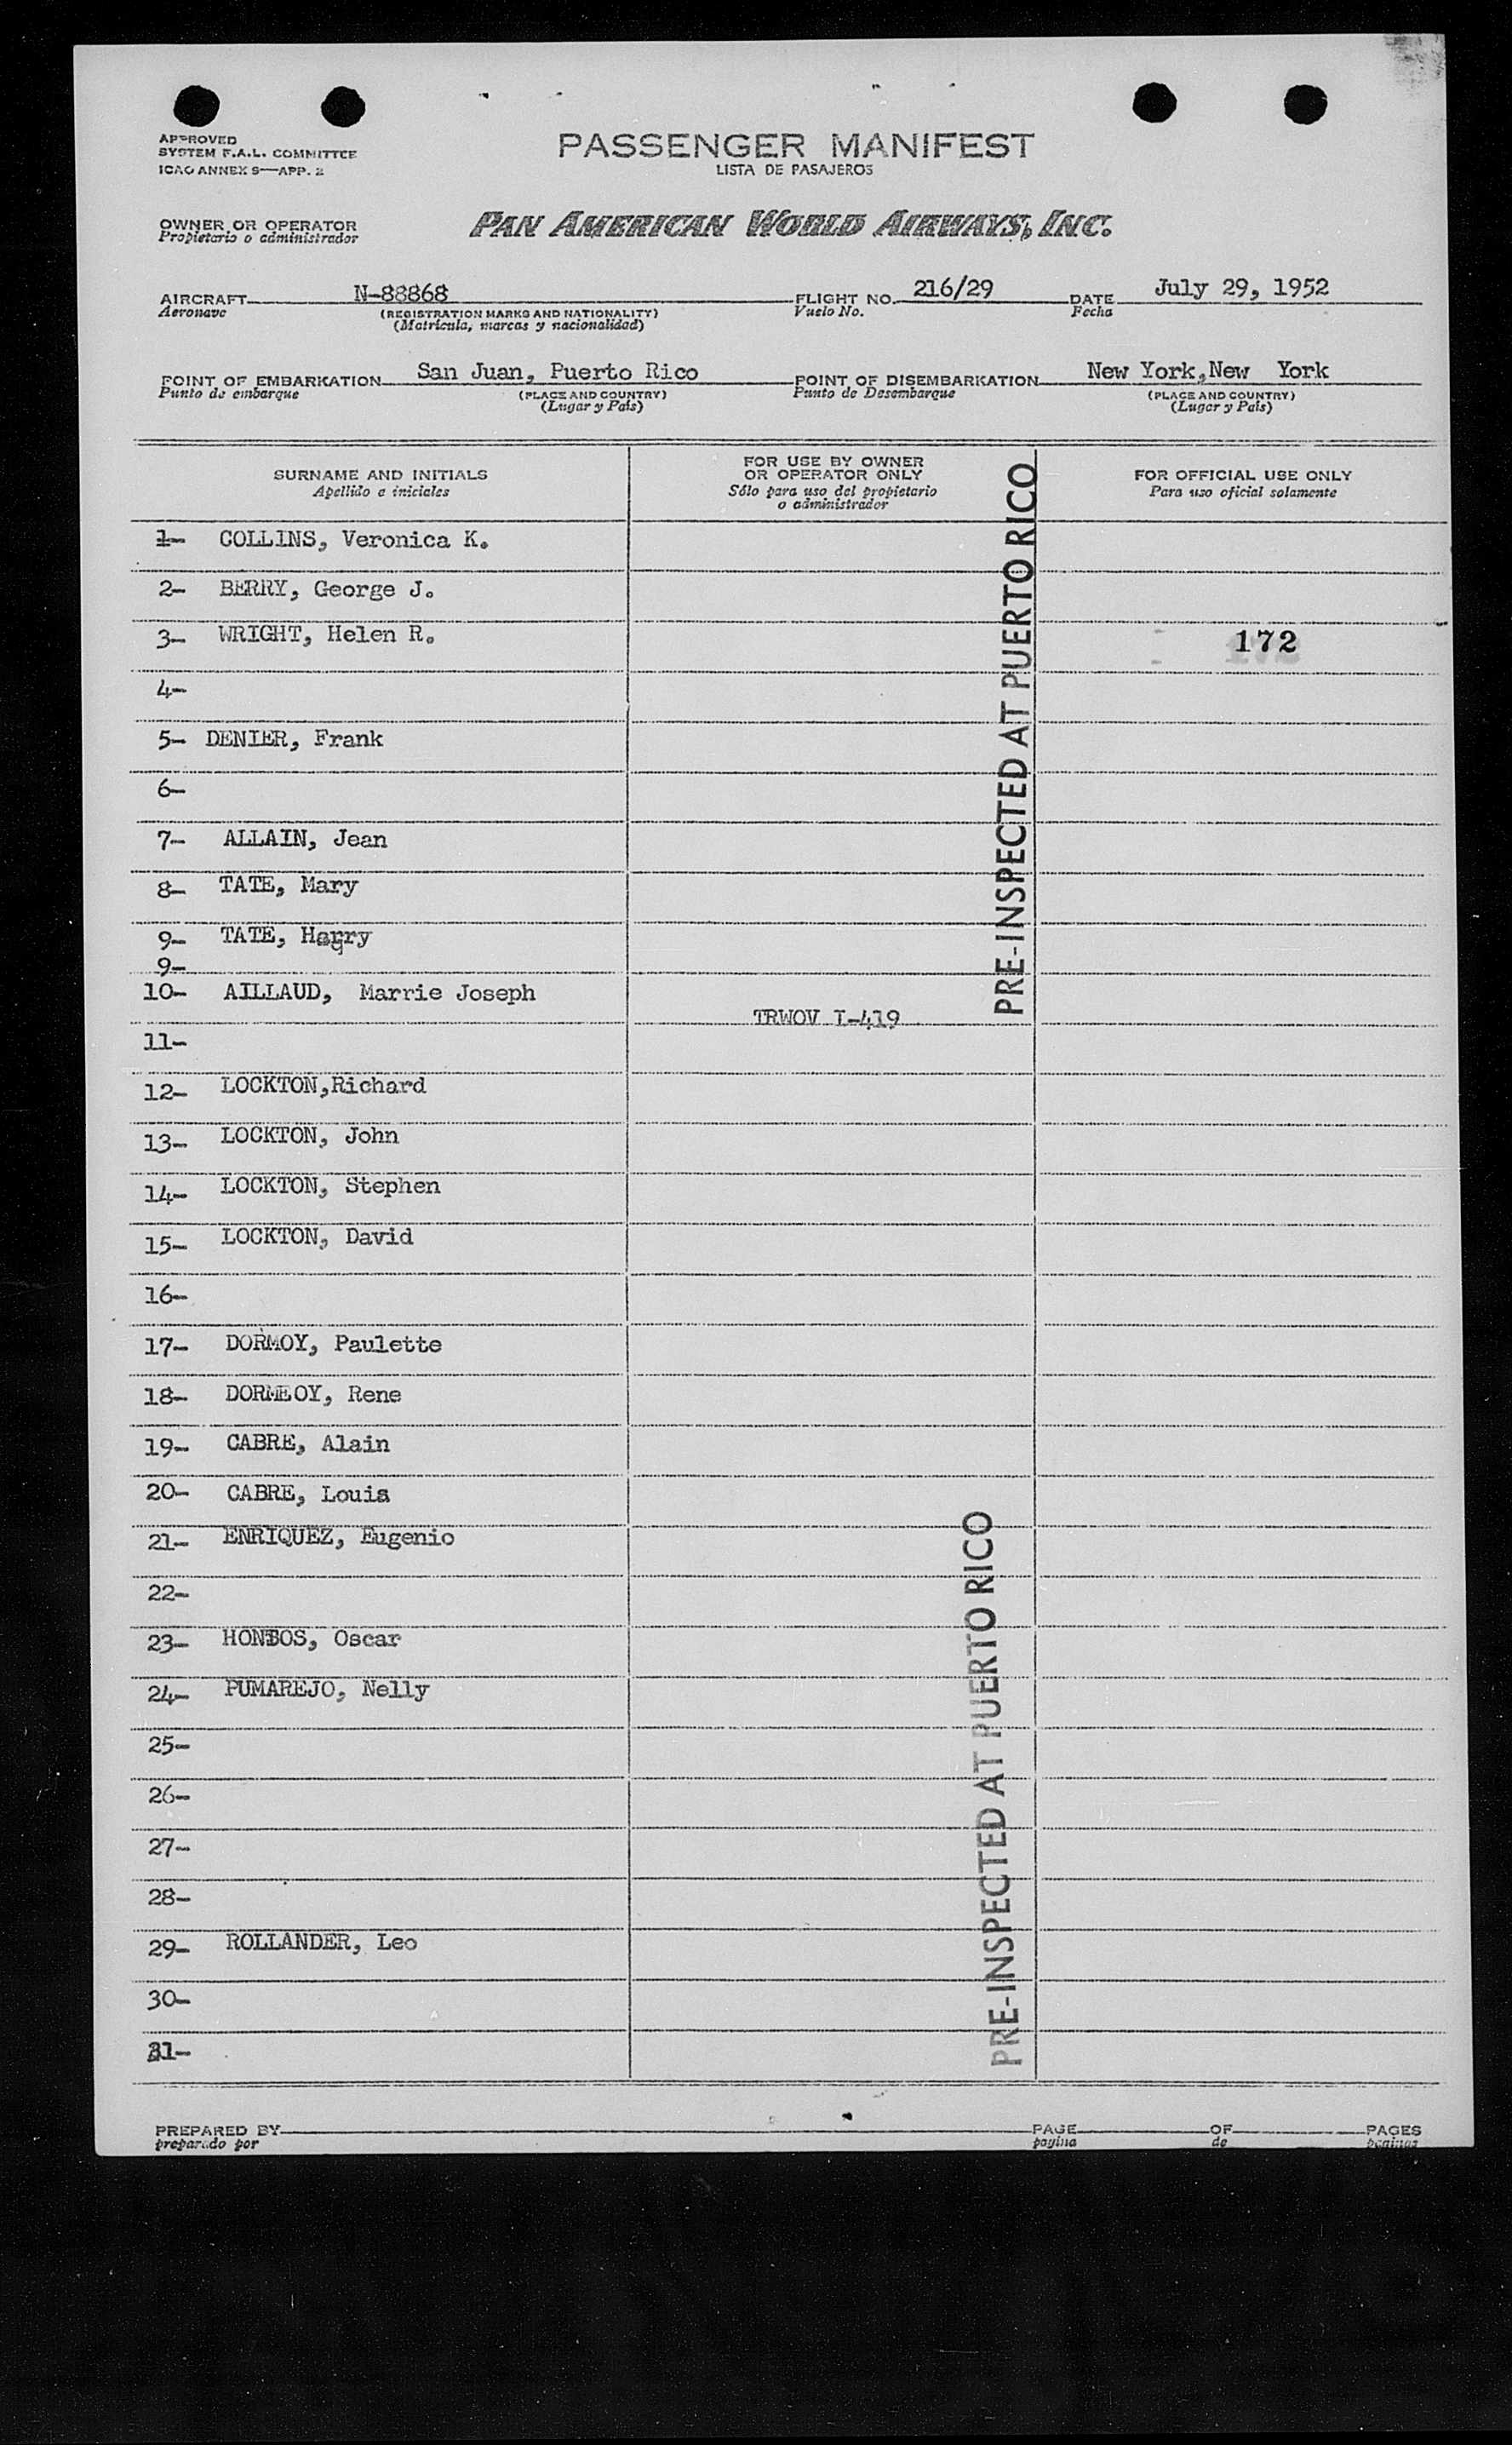 APPROVED
SYSTEM F.A.L. COMMITTEE
ICAO ANNEX 9—APP. 2
PASSENGER MANIFEST
LISTA DE PASAJEROS
OWNER OR OPERATOR
Propietario o administrador
PAN AMERICAN WORLD AIRWAYS, INC.
AIRCRAFT N-88868 FLIGHT NO. 216/29 DATE July 29, 1952
Aeronave (REGISTRATION MARKS AND NATIONALITY) Vuelo No. Fecha
(Matrícula, marcas y nacionalidad)
POINT OF EMBARKATION San Juan, Puerto Rico POINT OF DISEMBARKATION New York, New York
Punto de embarque (PLACE AND COUNTRY) Punto de Desembarque (PLACE AND COUNTRY)
(Lugar y País) (Lugar y País)
SURNAME AND INITIALS
Apellido e iniciales
FOR USE BY OWNER
OR OPERATOR ONLY
Sólo para uso del propietario
o administrador
FOR OFFICIAL USE ONLY
Para uso oficial solamente
1- COLLINS, Veronica K.
2- BERRY, George J.
3- WRIGHT, Helen R. 172
4-
5- DENIER, Frank
6-
7- ALLAIN, Jean
8- TATE, Mary
9- TATE, Harry
9-
10- AILLAUD, Marrie Joseph
TRWOV I-419
11-
12- LOCKTON,Richard
13- LOCKTON, John
14- LOCKTON, Stephen
15- LOCKTON, David
16-
17- DORMOY, Paulette
18- DORMOY, Rene
19- CABRE, Alain
20- CABRE, Louis
21- ENRIQUEZ, Eugenio
22-
23- Oscar
24- PUMAREJO, Nelly
25-
26-
27-
28-
29- ROLLANDER, Leo
30-
31-
PRE-INSPECTED AT PUERTO RICO
PRE-INSPECTED AT PUERTO RICO
PREPARED BY PAGE OF PAGES
preparado por pagina de paginas